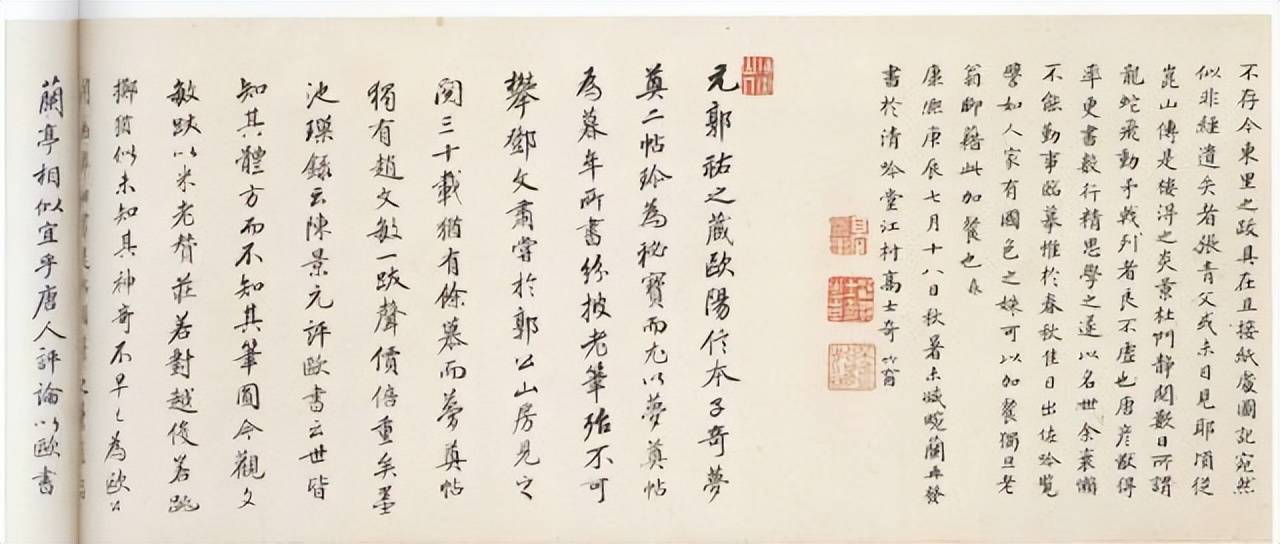 不存今東里之跋具在且接紙處圖記宛然
似非經遺矣者張青父或未目見耶頃從
崑山傳是樓得之炎景杜門靜閱數日所謂
龍蛇飛動矛戟列者良不虛也唐彥猷得
率更書數行精思學之遂以名世余衰懶
不能勤事臨摹惟於春秋佳日出佐吟覽
譬如人家有國色之姝可以加餐獨旦老
翁聊藉此加餐也
康熙庚辰七月十八日秋暑未減畹蘭再發
書於清吟堂江村高士奇
元郭祐之藏歐陽信本子奇夢
奠二帖珍為秘寶而尤以夢奠帖
為暮年所書紛披老筆殆不可
攀鄧文肅嘗於郭公山房見之
閱三十載猶有餘慕而夢奠帖
獨有趙文敏一跋聲價倍重矣墨
池璅錄云陳景元評歐書云世皆
知其體方而不知其筆圓今觀文
敏跋以米老贊莊若對越俊若跳
擲猶似未知其神奇不早之為歐公
蘭亭相似宜乎唐人評論以歐書